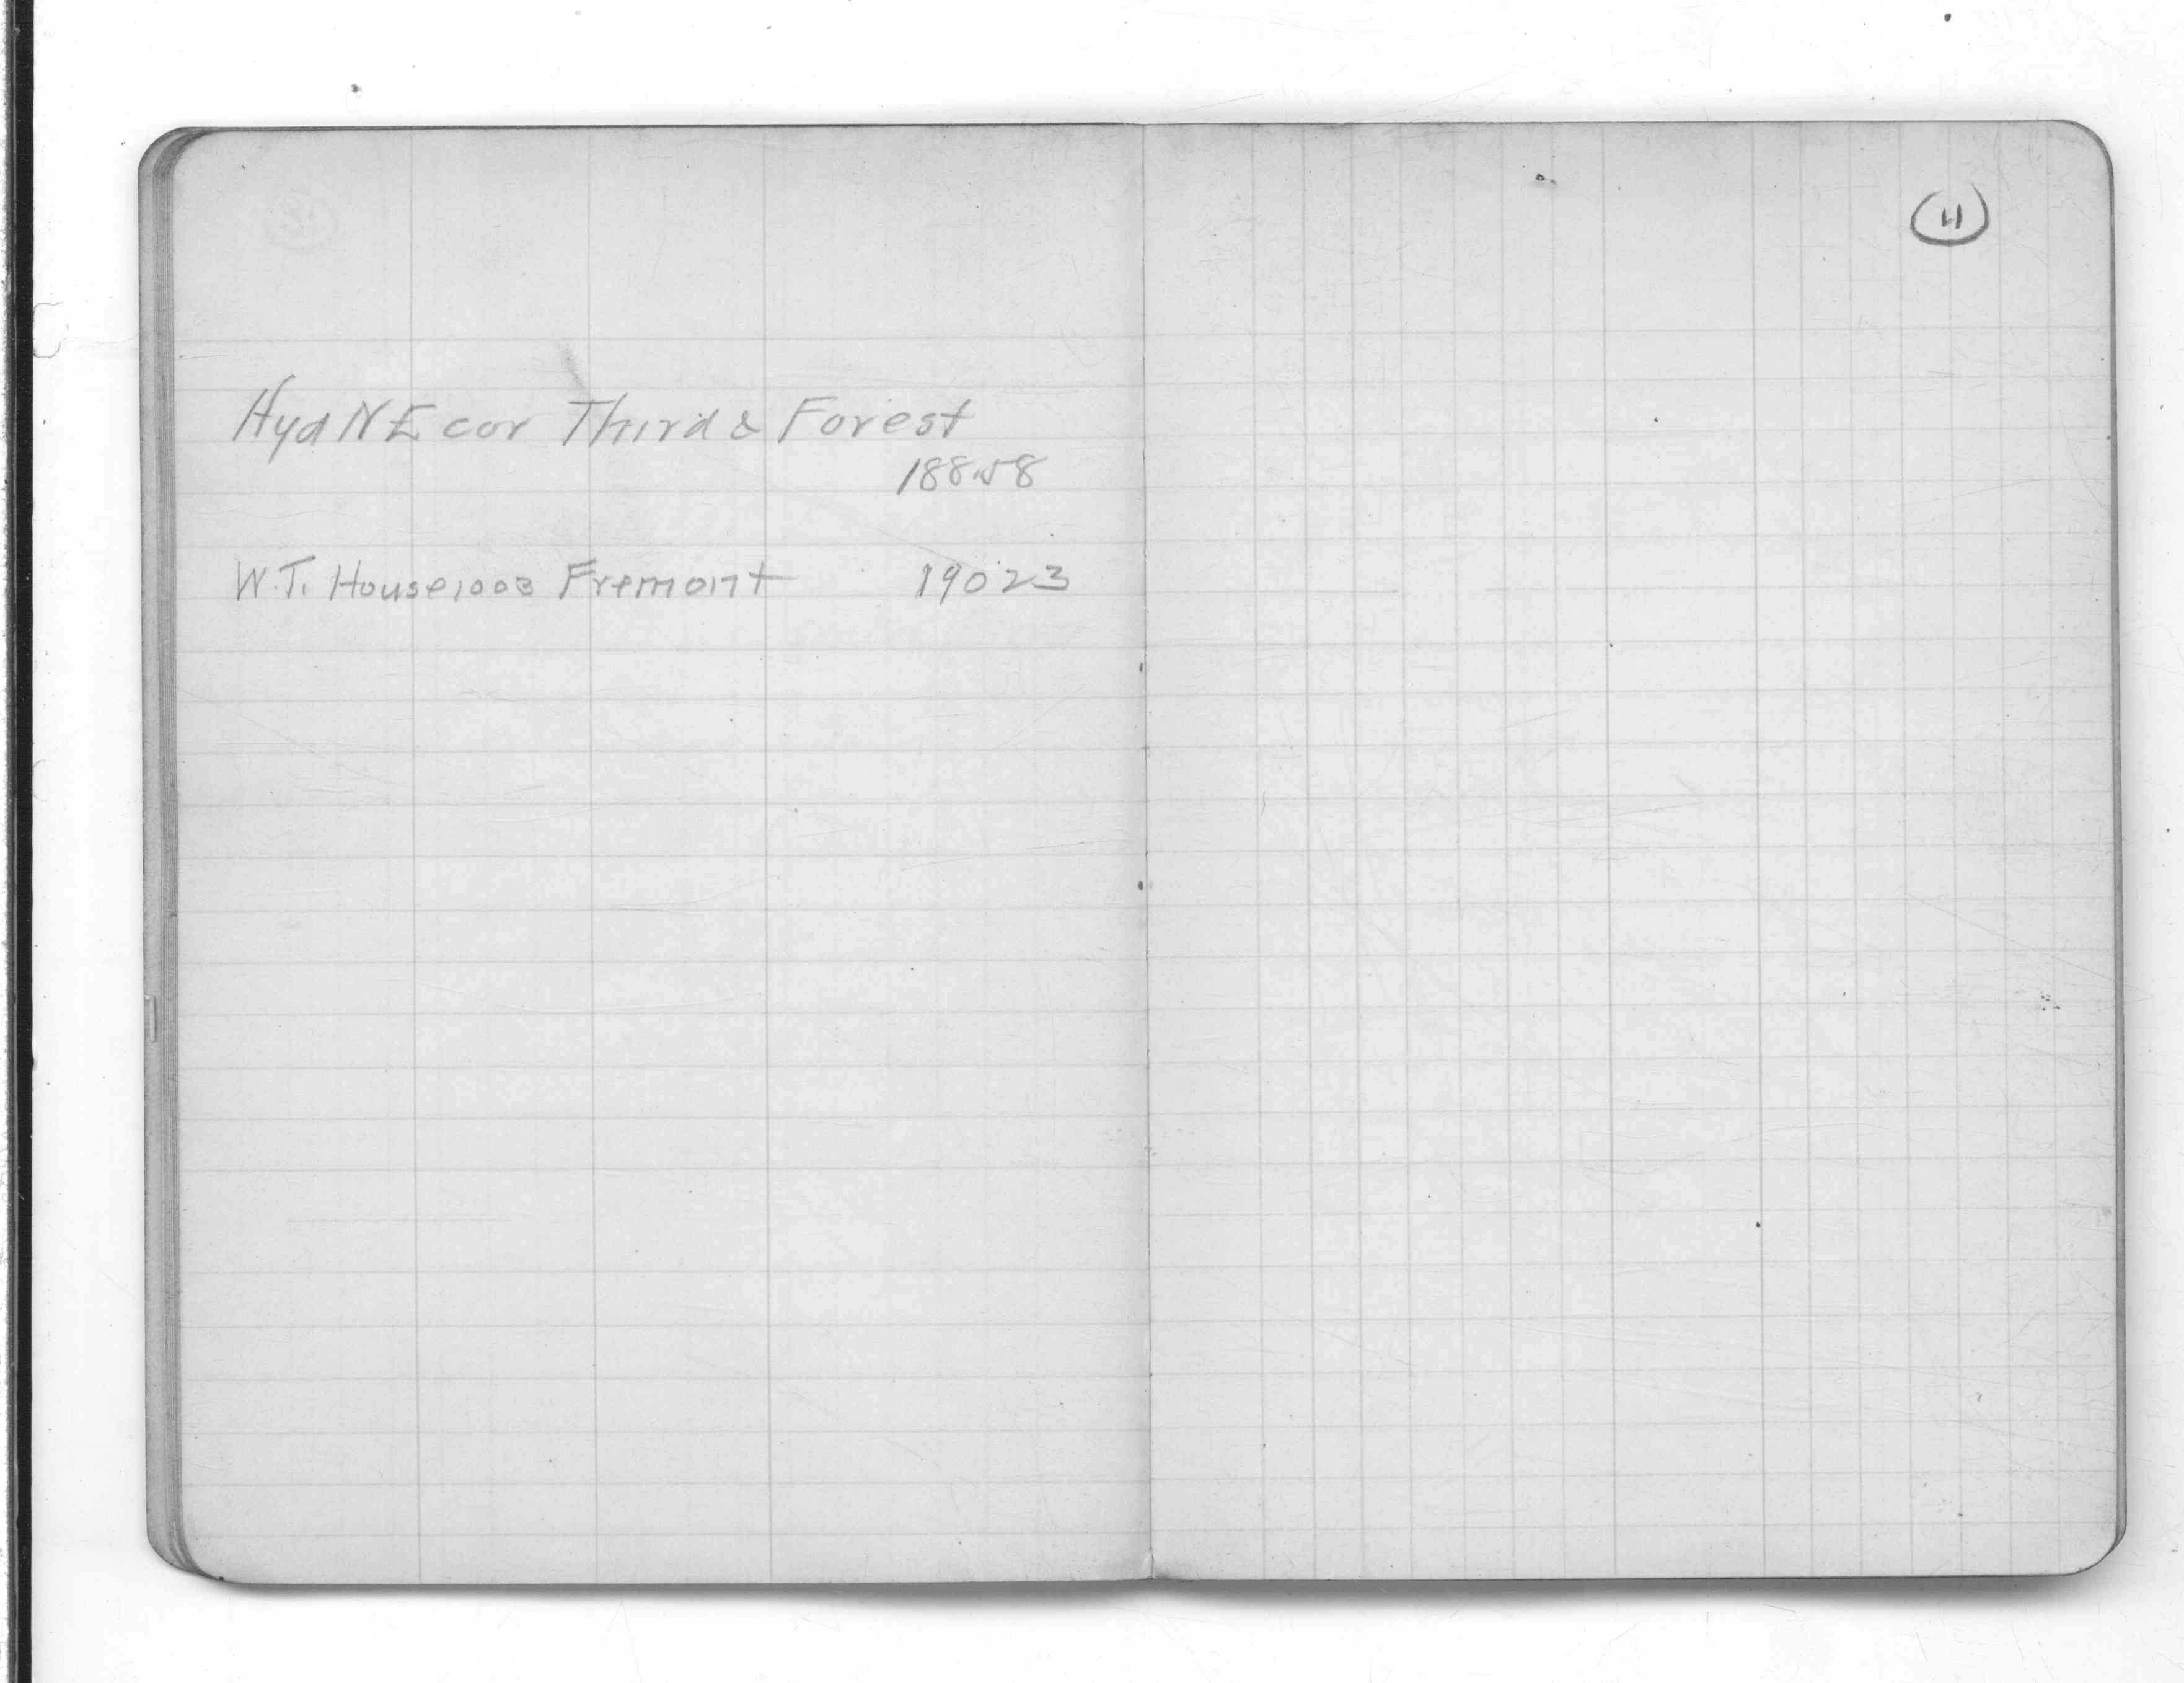 Hyd NE cor Third & Forest
18858
W.T. House 1003 Fremont 19023
11